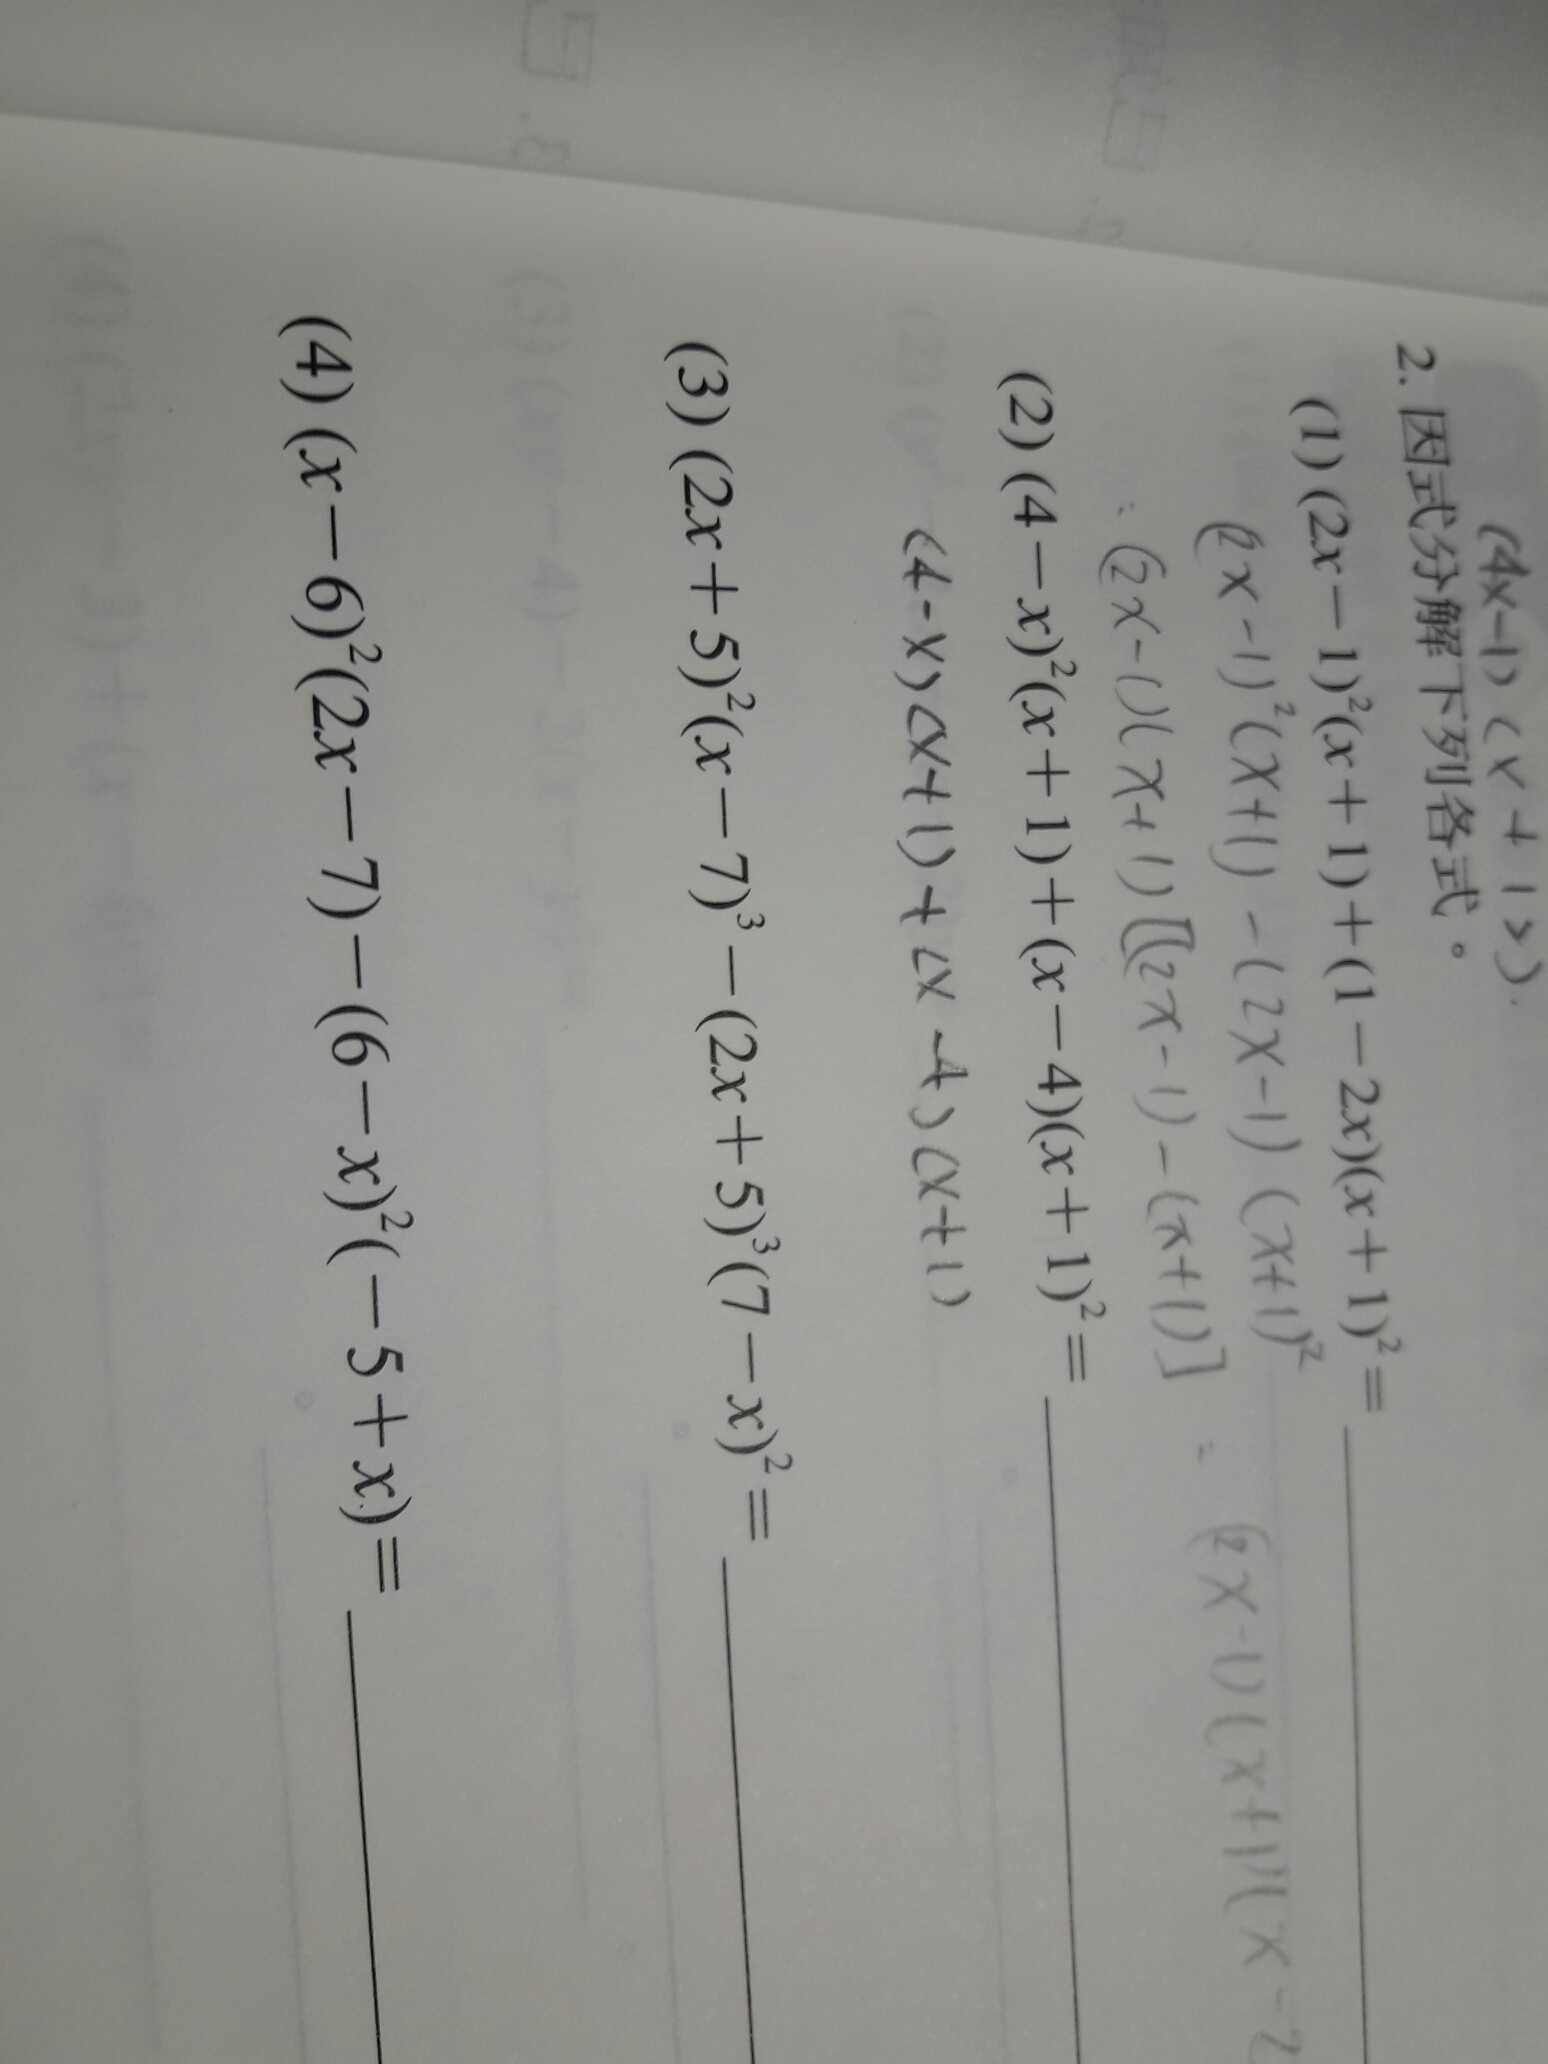 (4x-1)(x+1).
2. 因式分解下列各式。
(1) (2x－1)²(x＋1)＋(1－2x)(x＋1)²=
(2x-1)²(x+1) -(2x-1)(x+1)²
= (2x-1)(x+1)[(2x-1)-(x+1)] = (2x-1)(x+1)(x-2
(2) (4－x)²(x＋1)＋(x－4)(x＋1)²=
(4-x)(x+1)+(x-4)(x+1)
(3) (2x＋5)²(x－7)³－(2x＋5)³(7－x)²=
(4) (x－6)²(2x－7)－(6－x)²(－5＋x)=